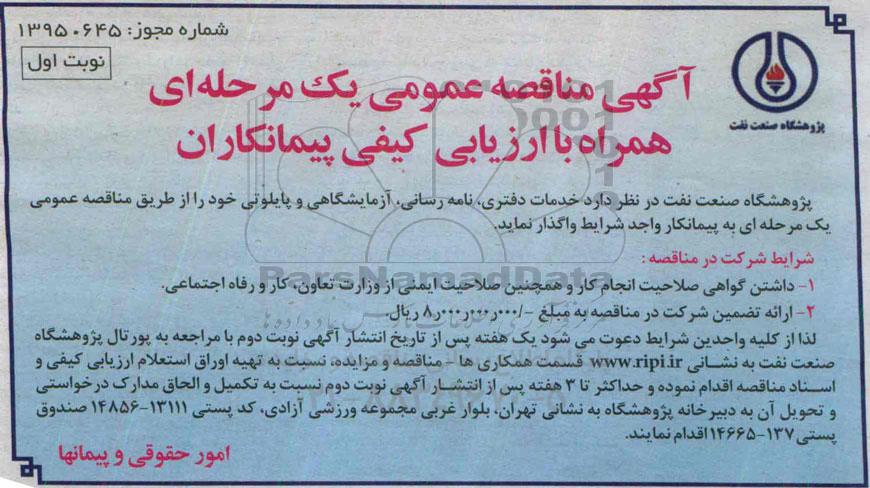 شماره مجوز: ۱۳۹۵۰۶۴۵
نوبت اول
پژوهشگاه صنعت نفت
آگهی مناقصه عمومی یک مرحله‌ای
همراه با ارزیابی کیفی پیمانکاران
پژوهشگاه صنعت نفت در نظر دارد خدمات دفتری، نامه رسانی، آزمایشگاهی و پایلوتی خود را از طریق مناقصه عمومی
یک مرحله ای به پیمانکار واجد شرایط واگذار نماید.
شرایط شرکت در مناقصه :
۱- داشتن گواهی صلاحیت انجام کار و همچنین صلاحیت ایمنی از وزارت تعاون، کار و رفاه اجتماعی.
۲- ارائه تضمین شرکت در مناقصه به مبلغ -/۸٫۰۰۰٫۰۰۰٫۰۰۰ ریال.
لذا از کلیه واجدین شرایط دعوت می شود یک هفته پس از تاریخ انتشار آگهی نوبت دوم با مراجعه به پورتال پژوهشگاه
صنعت نفت به نشانی www.ripi.ir قسمت همکاری ها - مناقصه و مزایده، نسبت به تهیه اوراق استعلام ارزیابی کیفی و
اسناد مناقصه اقدام نموده و حداکثر تا ۳ هفته پس از انتشار آگهی نوبت دوم نسبت به تکمیل و الحاق مدارک درخواستی
و تحویل آن به دبیرخانه پژوهشگاه به نشانی تهران، بلوار غربی مجموعه ورزشی آزادی، کد پستی ۱۳۱۱۱-۱۴۸۵۶ صندوق
پستی ۱۳۷-۱۴۶۶۵ اقدام نمایند.
امور حقوقی و پیمانها
ParsNamadData